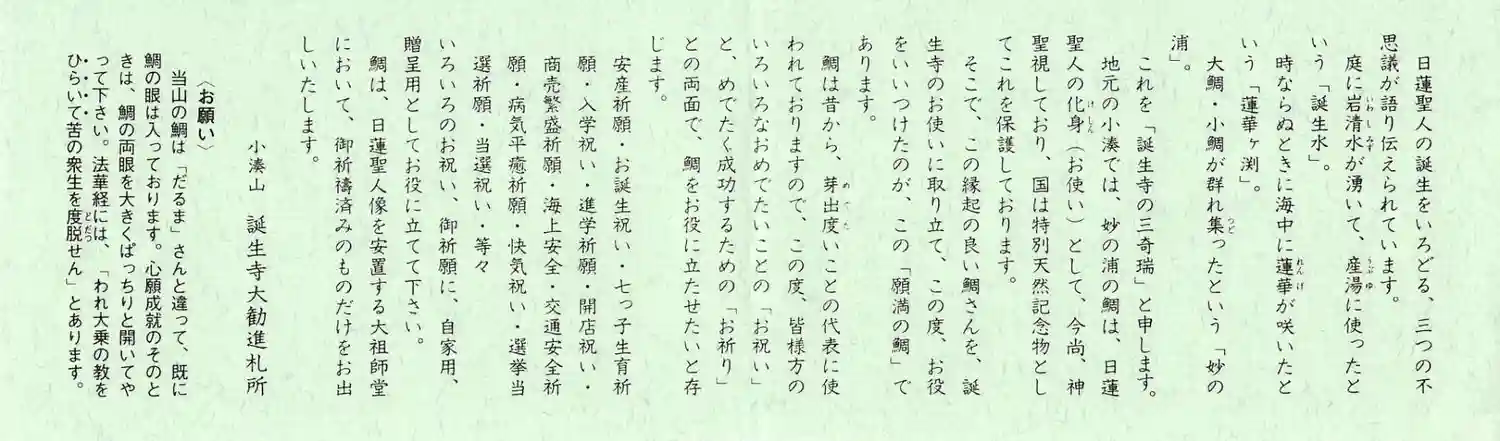 日蓮聖人の誕生をいろどる、三つの不
思議が語り伝えられています。
庭に岩清水が湧いて、産湯に使ったと
いう「誕生水」。
時ならぬときに海中に蓮華が咲いたと
いう「蓮華ヶ渕」。
大鯛・小鯛が群れ集ったという「妙の
浦」。
これを「誕生寺の三奇瑞」と申します。
地元の小湊では、妙の浦の鯛は、日蓮
聖人の化身（お使い）として、今尚、神
聖視しており、国は特別天然記念物とし
てこれを保護しております。
そこで、この縁起の良い鯛さんを、誕
生寺のお使いに取り立て、この度、お役
をいいつけたのが、この「願満の鯛」で
あります。
鯛は昔から、芽出度いことの代表に使
われておりますので、この度、皆様方の
いろいろなおめでたいことの「お祝い」
と、めでたく成功するための「お祈り」
との両面で、鯛をお役に立たせたいと存
じます。
安産祈願・お誕生祝い・七っ子生育祈
願・入学祝い・進学祈願・開店祝い・
商売繁盛祈願・海上安全・交通安全祈
願・病気平癒祈願・快気祝い・選挙当
選祈願・当選祝い・等々
いろいろのお祝い、御祈願に、自家用、
贈呈用としてお役に立てて下さい。
鯛は、日蓮聖人像を安置する大祖師堂
において、御祈禱済みのものだけをお出
しいたします。
小湊山　誕生寺大勧進札所
〈お願い〉
当山の鯛は「だるま」さんと違って、既に
鯛の眼は入っております。心願成就のそのと
きは、鯛の両眼を大きくぱっちりと開いてや
って下さい。法華経には、「われ大乗の教を
ひらいて苦の衆生を度脱せん」とあります。